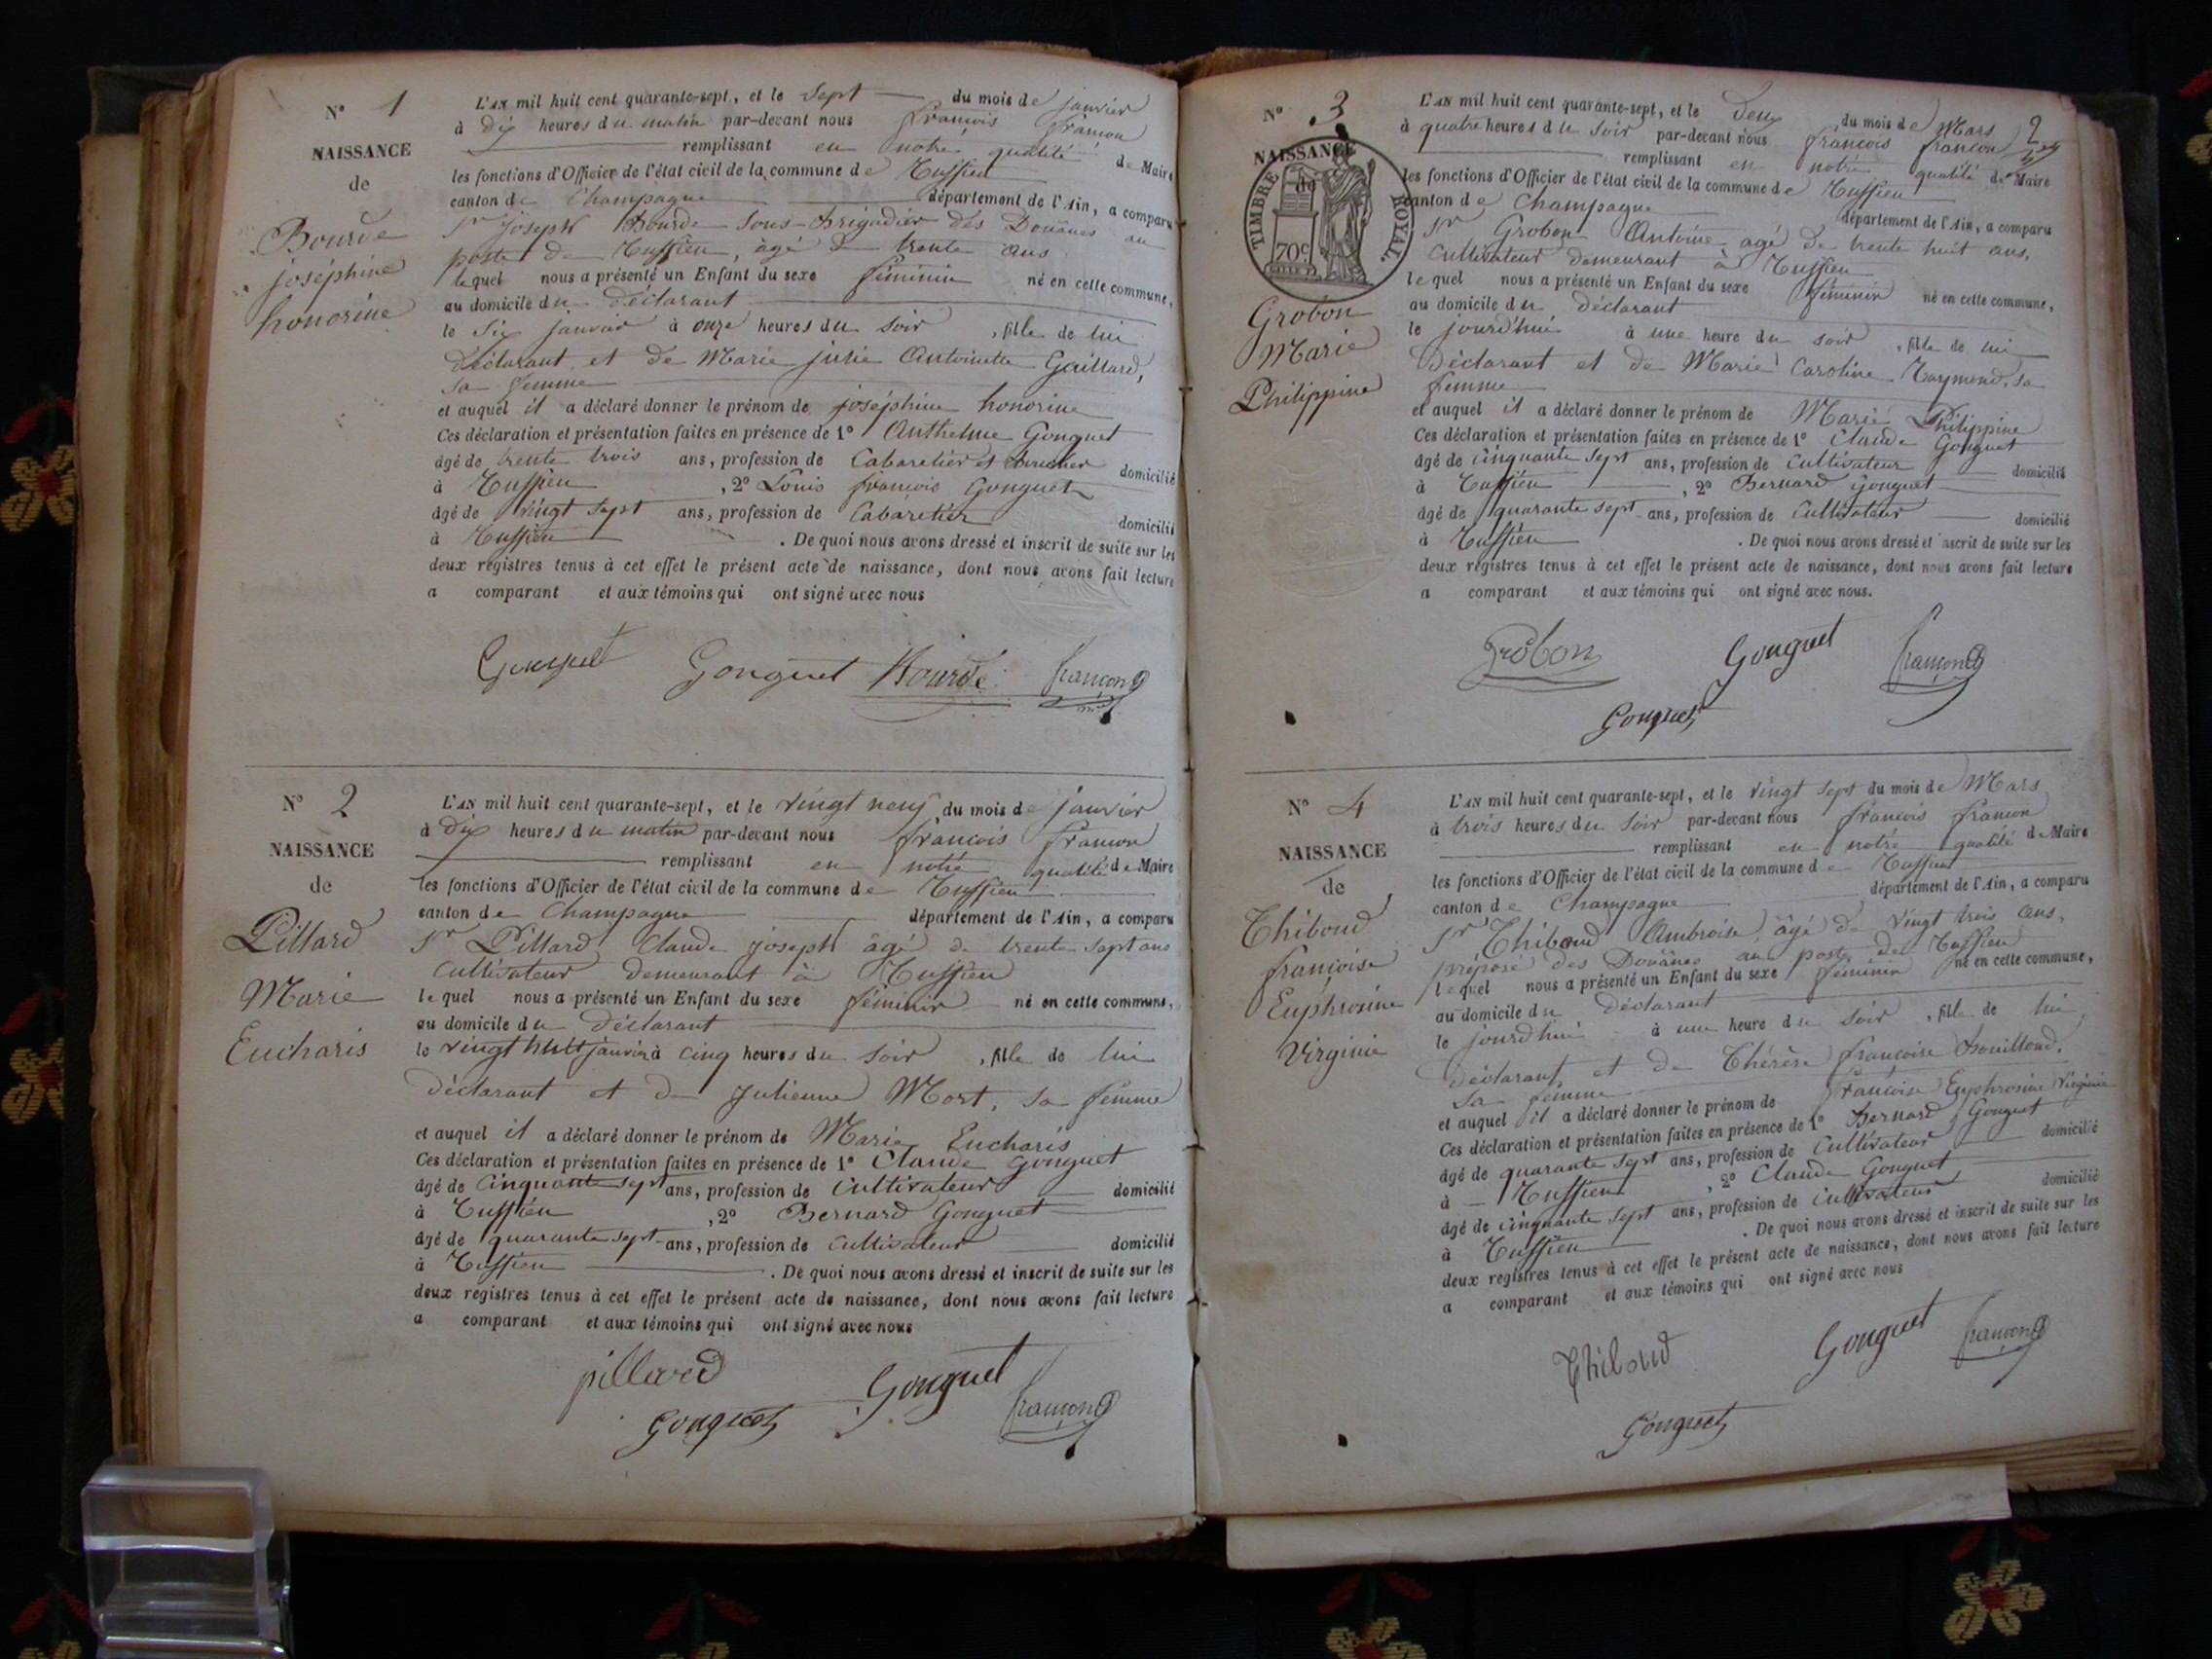 N° 1
NAISSANCE
de
Bourde
joséphine
honorine
L'AN mil huit cent quarante-sept, et le Sept du mois de janvier
à dix heures du matin par-devant nous françois françon
remplissant en notre qualité de Maire
les fonctions d'Officier de l'état civil de la commune de Tussieu
canton de Champagne département de l'Ain, a comparu
Sr joseph Bourde Sous-brigadier des Douanes au
poste de Tussieu, âgé de trente ans
lequel nous a présenté un Enfant du sexe féminin né en cette commune,
au domicile du déclarant
le Six janvier à onze heures du soir, fille de lui
Déclarant et de Marie julie Antoinette Gaillard,
sa femme
et auquel il a déclaré donner le prénom de joséphine honorine
Ces déclaration et présentation faites en présence de 1° Anthelme Gonguet
âgé de trente trois ans, profession de Cabaretier et boucher domicilié
à Tussieu, 2° Louis françois Gonguet
âgé de vingt sept ans, profession de Cabaretier domicilié
à Tussieu. De quoi nous avons dressé et inscrit de suite sur les
deux registres tenus à cet effet le présent acte de naissance, dont nous avons fait lecture
a comparant et aux témoins qui ont signé avec nous
Gonguet Gonguet Bourde françon
N° 2
NAISSANCE
de
Pillard
Marie
Eucharis
L'AN mil huit cent quarante-sept, et le vingt neuf du mois de janvier
à dix heures du matin par-devant nous françois françon
remplissant en notre qualité de Maire
les fonctions d'Officier de l'état civil de la commune de Tussieu
canton de Champagne département de l'Ain, a comparu
Sr Pillard Claude joseph âgé de trente sept ans
Cultivateur demeurant à Tussieu
lequel nous a présenté un Enfant du sexe féminin né en cette commune,
au domicile du Déclarant
le vingt huit janvier à cinq heures du soir, fille de lui
déclarant et de Julienne Mort, sa femme
et auquel il a déclaré donner le prénom de Marie Eucharis
Ces déclaration et présentation faites en présence de 1° Claude Gonguet
âgé de Cinquante sept ans, profession de Cultivateur domicilié
à Tussieu, 2° Bernard Gonguet
âgé de quarante sept ans, profession de Cultivateur domicilié
à Tussieu. De quoi nous avons dressé et inscrit de suite sur les
deux registres tenus à cet effet le présent acte de naissance, dont nous avons fait lecture
a comparant et aux témoins qui ont signé avec nous
pillard Gonguet françon
Gonguet
2
N° 3
NAISSANCE
de
TIMBRE ROYAL
70c
Grobon
Marie
Philippine
L'AN mil huit cent quarante-sept, et le Deux du mois de Mars
à quatre heures du soir par-devant nous françois françon
remplissant en notre qualité de Maire
les fonctions d'Officier de l'état civil de la commune de Tussieu
canton de Champagne département de l'Ain, a comparu
Sr Grobon Antoine âgé de trente huit ans,
Cultivateur demeurant à Tussieu
lequel nous a présenté un Enfant du sexe féminin né en cette commune,
au domicile du déclarant
le jourd'hui à une heure du soir, fille de lui
Déclarant et de Marie Caroline Raymond, sa
femme
et auquel il a déclaré donner le prénom de Marie Philippine
Ces déclaration et présentation faites en présence de 1° Claude Gonguet
âgé de cinquante sept ans, profession de Cultivateur domicilié
à Tussieu, 2° Bernard Gonguet
âgé de quarante sept ans, profession de Cultivateur domicilié
à Tussieu. De quoi nous avons dressé et inscrit de suite sur les
deux registres tenus à cet effet le présent acte de naissance, dont nous avons fait lecture
a comparant et aux témoins qui ont signé avec nous.
Grobon Gonguet françon
Gonguet
N° 4
NAISSANCE
de
Thiboud
françoise
Euphrosine
Virginie
L'AN mil huit cent quarante-sept, et le vingt sept du mois de Mars
à trois heures du soir par-devant nous françois françon
remplissant en notre qualité de Maire
les fonctions d'Officier de l'état civil de la commune de Tussieu
canton de Champagne département de l'Ain, a comparu
Sr Thiboud Ambroise, âgé de vingt trois ans,
préposé des Douanes au poste de Tussieu
lequel nous a présenté un Enfant du sexe féminin né en cette commune,
au domicile du Déclarant
le jourd'hui à une heure du soir, fille de lui,
déclarant et de Thérèse françoise Bouilloud,
sa femme
et auquel il a déclaré donner le prénom de françoise Euphrosine Virginie
Ces déclaration et présentation faites en présence de 1° Bernard Gonguet
âgé de quarante sept ans, profession de Cultivateur domicilié
à Tussieu, 2° Claude Gonguet
âgé de cinquante sept ans, profession de Cultivateur domicilié
à Tussieu. De quoi nous avons dressé et inscrit de suite sur les
deux registres tenus à cet effet le présent acte de naissance, dont nous avons fait lecture
a comparant et aux témoins qui ont signé avec nous
Thiboud Gonguet françon
Gonguet